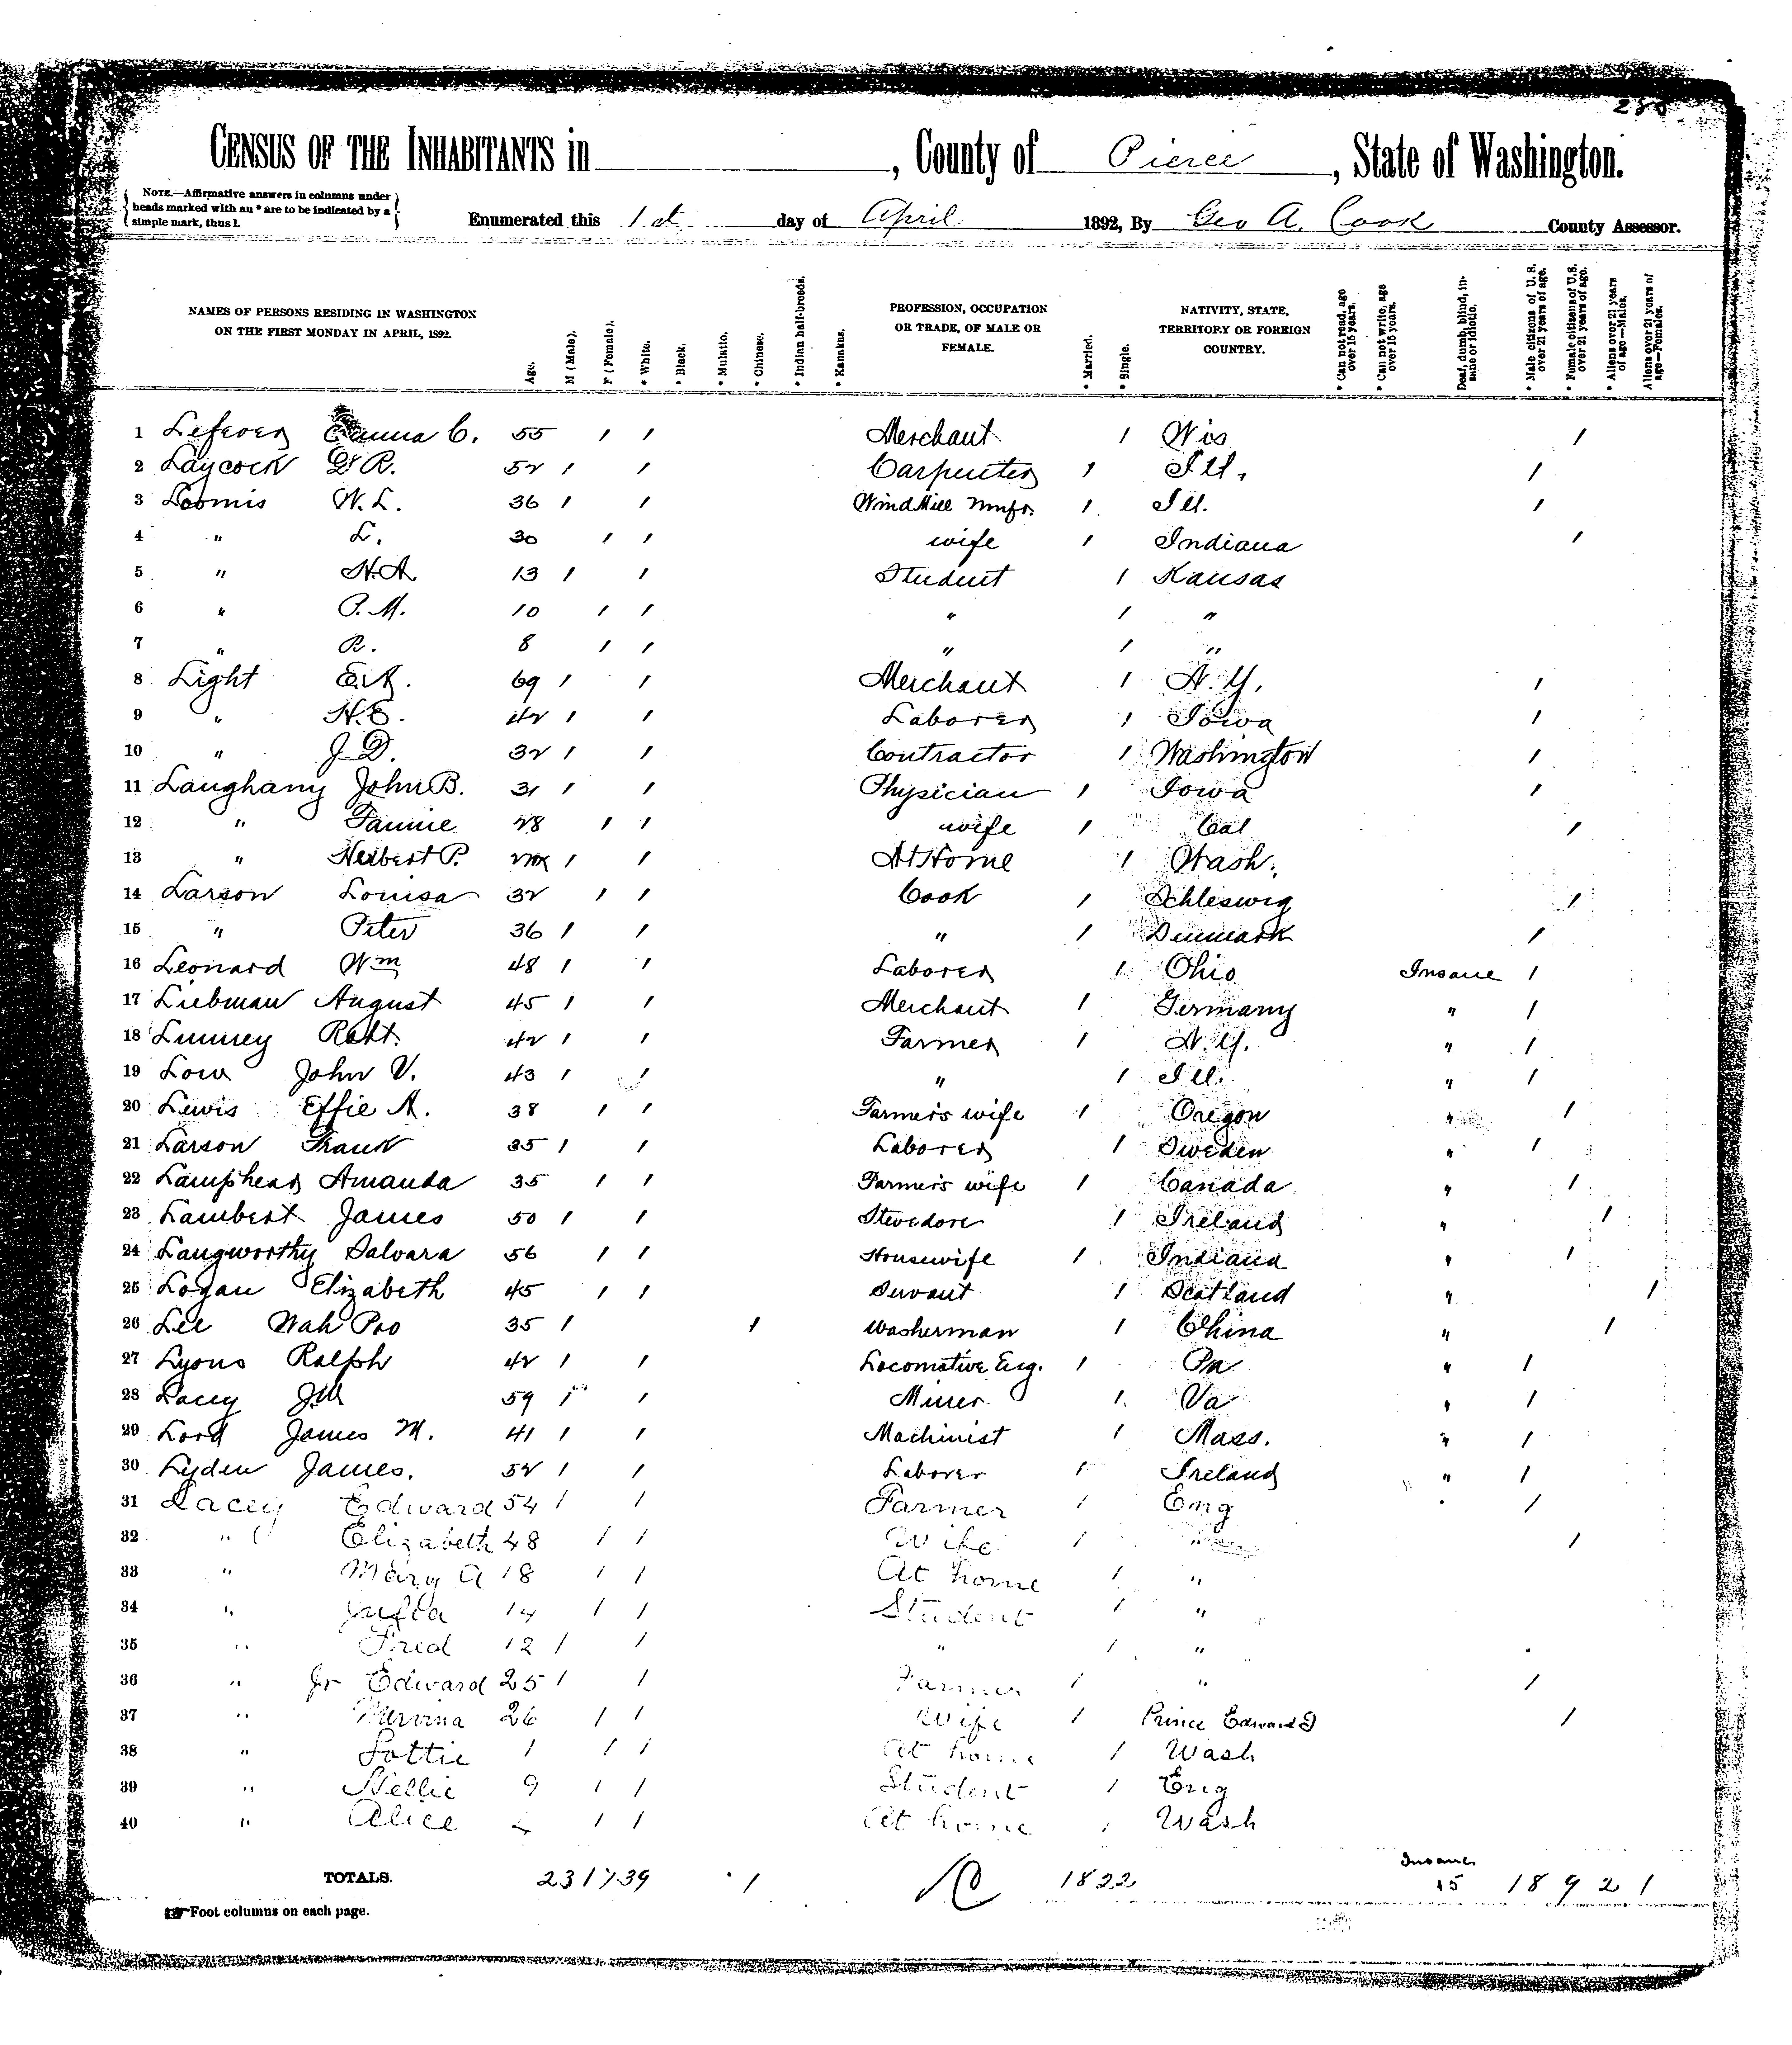 288
CENSUS OF THE INHABITANTS in , County of Pierce , State of Washington.
NOTE.—Affirmative answers in columns under heads marked with an * are to be indicated by a simple mark, thus 1.
Enumerated this 1st day of April 1892, By Geo A. Cook County Assessor.
NAMES OF PERSONS RESIDING IN WASHINGTON ON THE FIRST MONDAY IN APRIL, 1892. Age. M (Male). F (Female). * White. * Black. * Mulatto. * Chinese. * Indian half-breeds. * Kanakas. PROFESSION, OCCUPATION OR TRADE, OF MALE OR FEMALE. * Married. * Single. NATIVITY, STATE, TERRITORY OR FOREIGN COUNTRY. * Can not read, age over 15 years. * Can not write, age over 15 years. Deaf, dumb, blind, insane or idiotic. * Male citizens of U. S. over 21 years of age. * Female citizens of U.S. over 21 years of age. * Aliens over 21 years of age—Males. Aliens over 21 years of age—Females.
1 Lefever Emma C. 55 1 1 Merchant 1 Wis 1
2 Laycock R. 52 1 1 Carpenter 1 Ill. 1
3 Loomis W. L. 36 1 1 WindMill Mnfr. 1 Ill. 1
4 " L. 30 1 1 wife 1 Indiana 1
5 " H.A. 13 1 1 Student 1 Kansas
6 " P. M. 10 1 1 " 1 "
7 " R. 8 1 1 " 1 "
8 Light E.A. 69 1 1 Merchant 1 N.Y. 1
9 " H.E. 42 1 1 Laborer 1 Iowa 1
10 " J. D. 32 1 1 Contractor 1 Washington 1
11 Laughany John B. 31 1 1 Physician 1 Iowa 1
12 " Fannie 28 1 1 wife 1 Cal 1
13 " Herbert P. 1 1 At Home 1 Wash.
14 Larson Louisa 32 1 1 Cook 1 Schleswig 1
15 " Peter 36 1 1 " 1 Denmark 1
16 Leonard Wm 48 1 1 Laborer 1 Ohio Insane 1
17 Liebman August 45 1 1 Merchant 1 Germany " 1
18 Lumney Robt. 42 1 1 Farmer 1 N.Y. " 1
19 Low John V. 43 1 1 " 1 Ill. " 1
20 Lewis Effie A. 38 1 1 Farmer's wife 1 Oregon " 1
21 Larson Frank 35 1 1 Laborer 1 Sweden " 1
22 Lamphear Amanda 35 1 1 Farmer's wife 1 Canada " 1
23 Lambert James 50 1 1 Stevedore 1 Ireland " 1
24 Langworthy Salvara 56 1 1 Housewife 1 Indiana " 1
25 Logan Elizabeth 45 1 1 Servant 1 Scotland " 1
26 Lee Wah Poo 35 1 1 Washerman 1 China " 1
27 Lyons Ralph 42 1 1 Locomotive Eng. 1 Pa " 1
28 Lacey J.W. 59 1 1 Miner 1 Va " 1
29 Lord James M. 41 1 1 Machinist 1 Mass. " 1
30 Lyden James. 52 1 1 Laborer 1 Ireland " 1
31 Lacey Edward 54 1 Farmer 1 Eng 1
32 " Elizabeth 48 1 1 Wife 1 " 1
33 " Mary A 18 1 1 At home 1 "
34 " 14 1 1 Student 1 "
35 " Fred 12 1 1 " 1 "
36 " Jr Edward 25 1 1 Farmer 1 " 1
37 " 26 1 1 Wife 1 Prince Edward I 1
38 " Lottie 1 1 1 At home 1 Wash
39 " Nellie 9 1 1 Student 1 Eng
40 " Alice 1 1 At home 1 Wash
TOTALS. 23 17 39 1 18 22 Insane 15 18 9 2 1
Foot columns on each page.